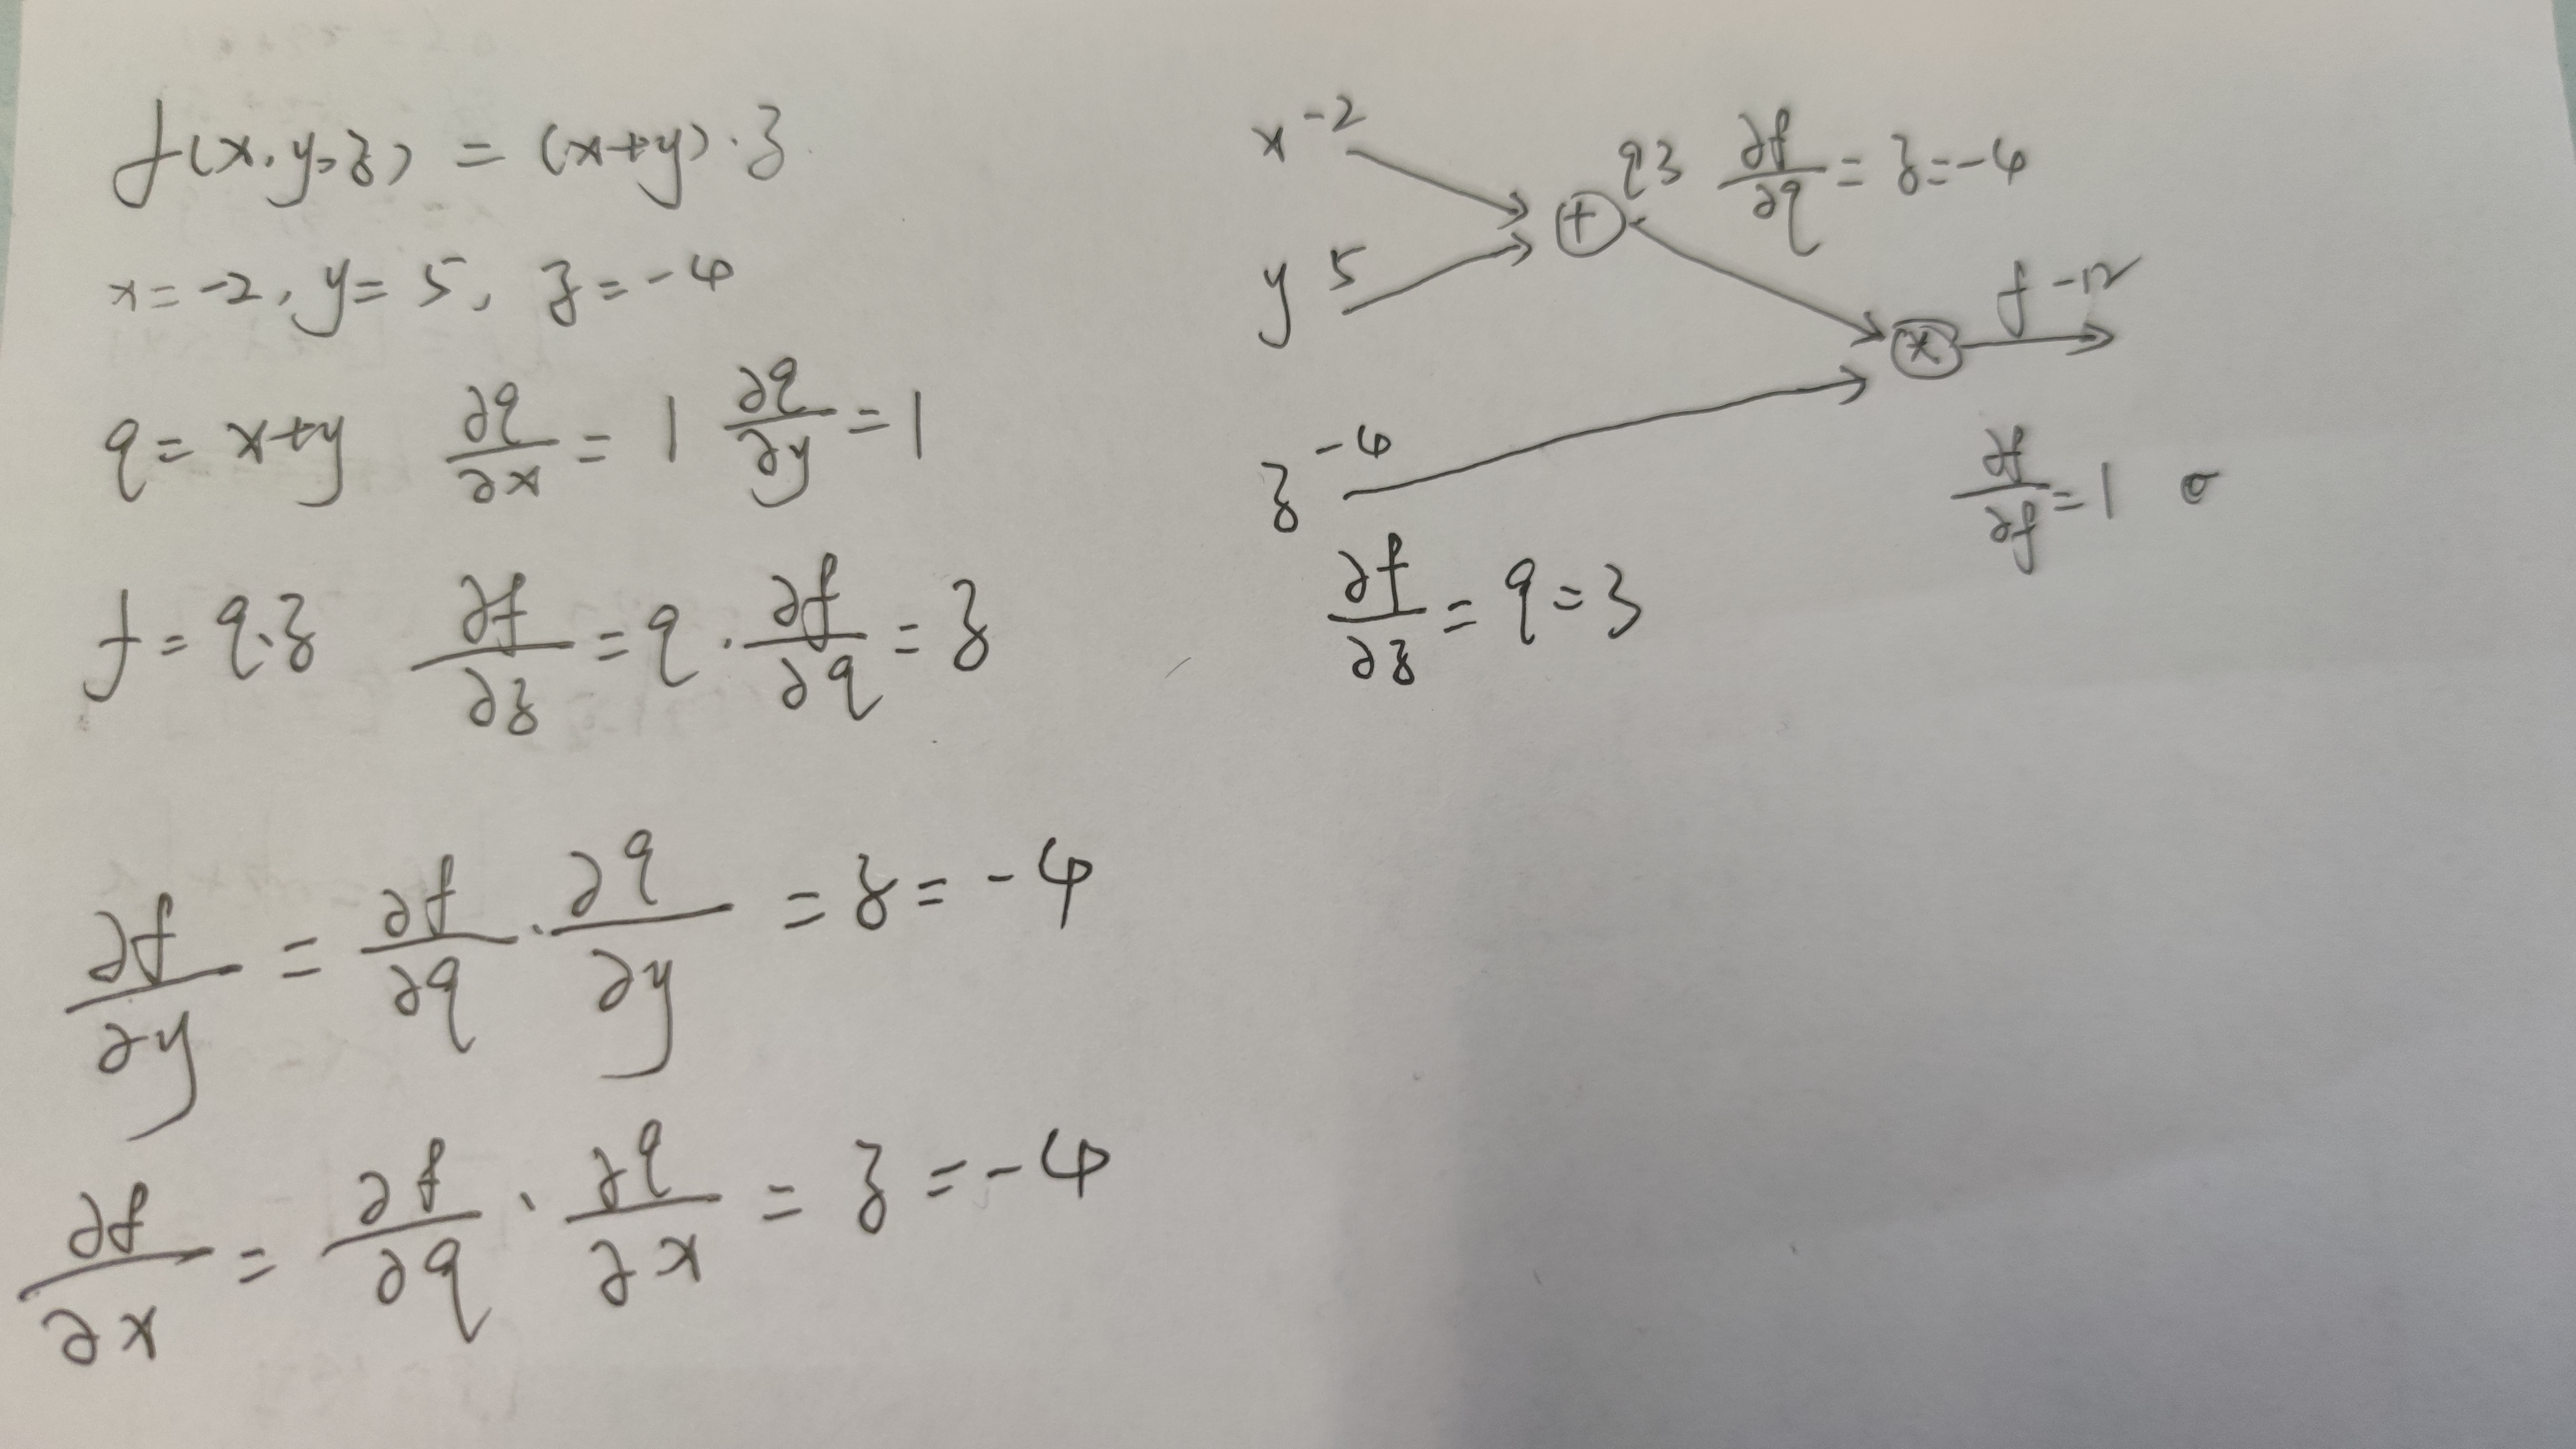 f(x,y,z) = (x+y)·z
x=-2, y=5, z=-4
q= x+y ∂q/∂x = 1 ∂q/∂y = 1
f= q·z ∂f/∂z = q · ∂f/∂q = z
∂f/∂y = ∂f/∂q · ∂q/∂y = z = -4
∂f/∂x = ∂f/∂q · ∂q/∂x = z = -4
x -2
+
q 3 ∂f/∂q = z = -4
y 5
f -12
*
z -4
∂f/∂f = 1
∂f/∂z = q = 3